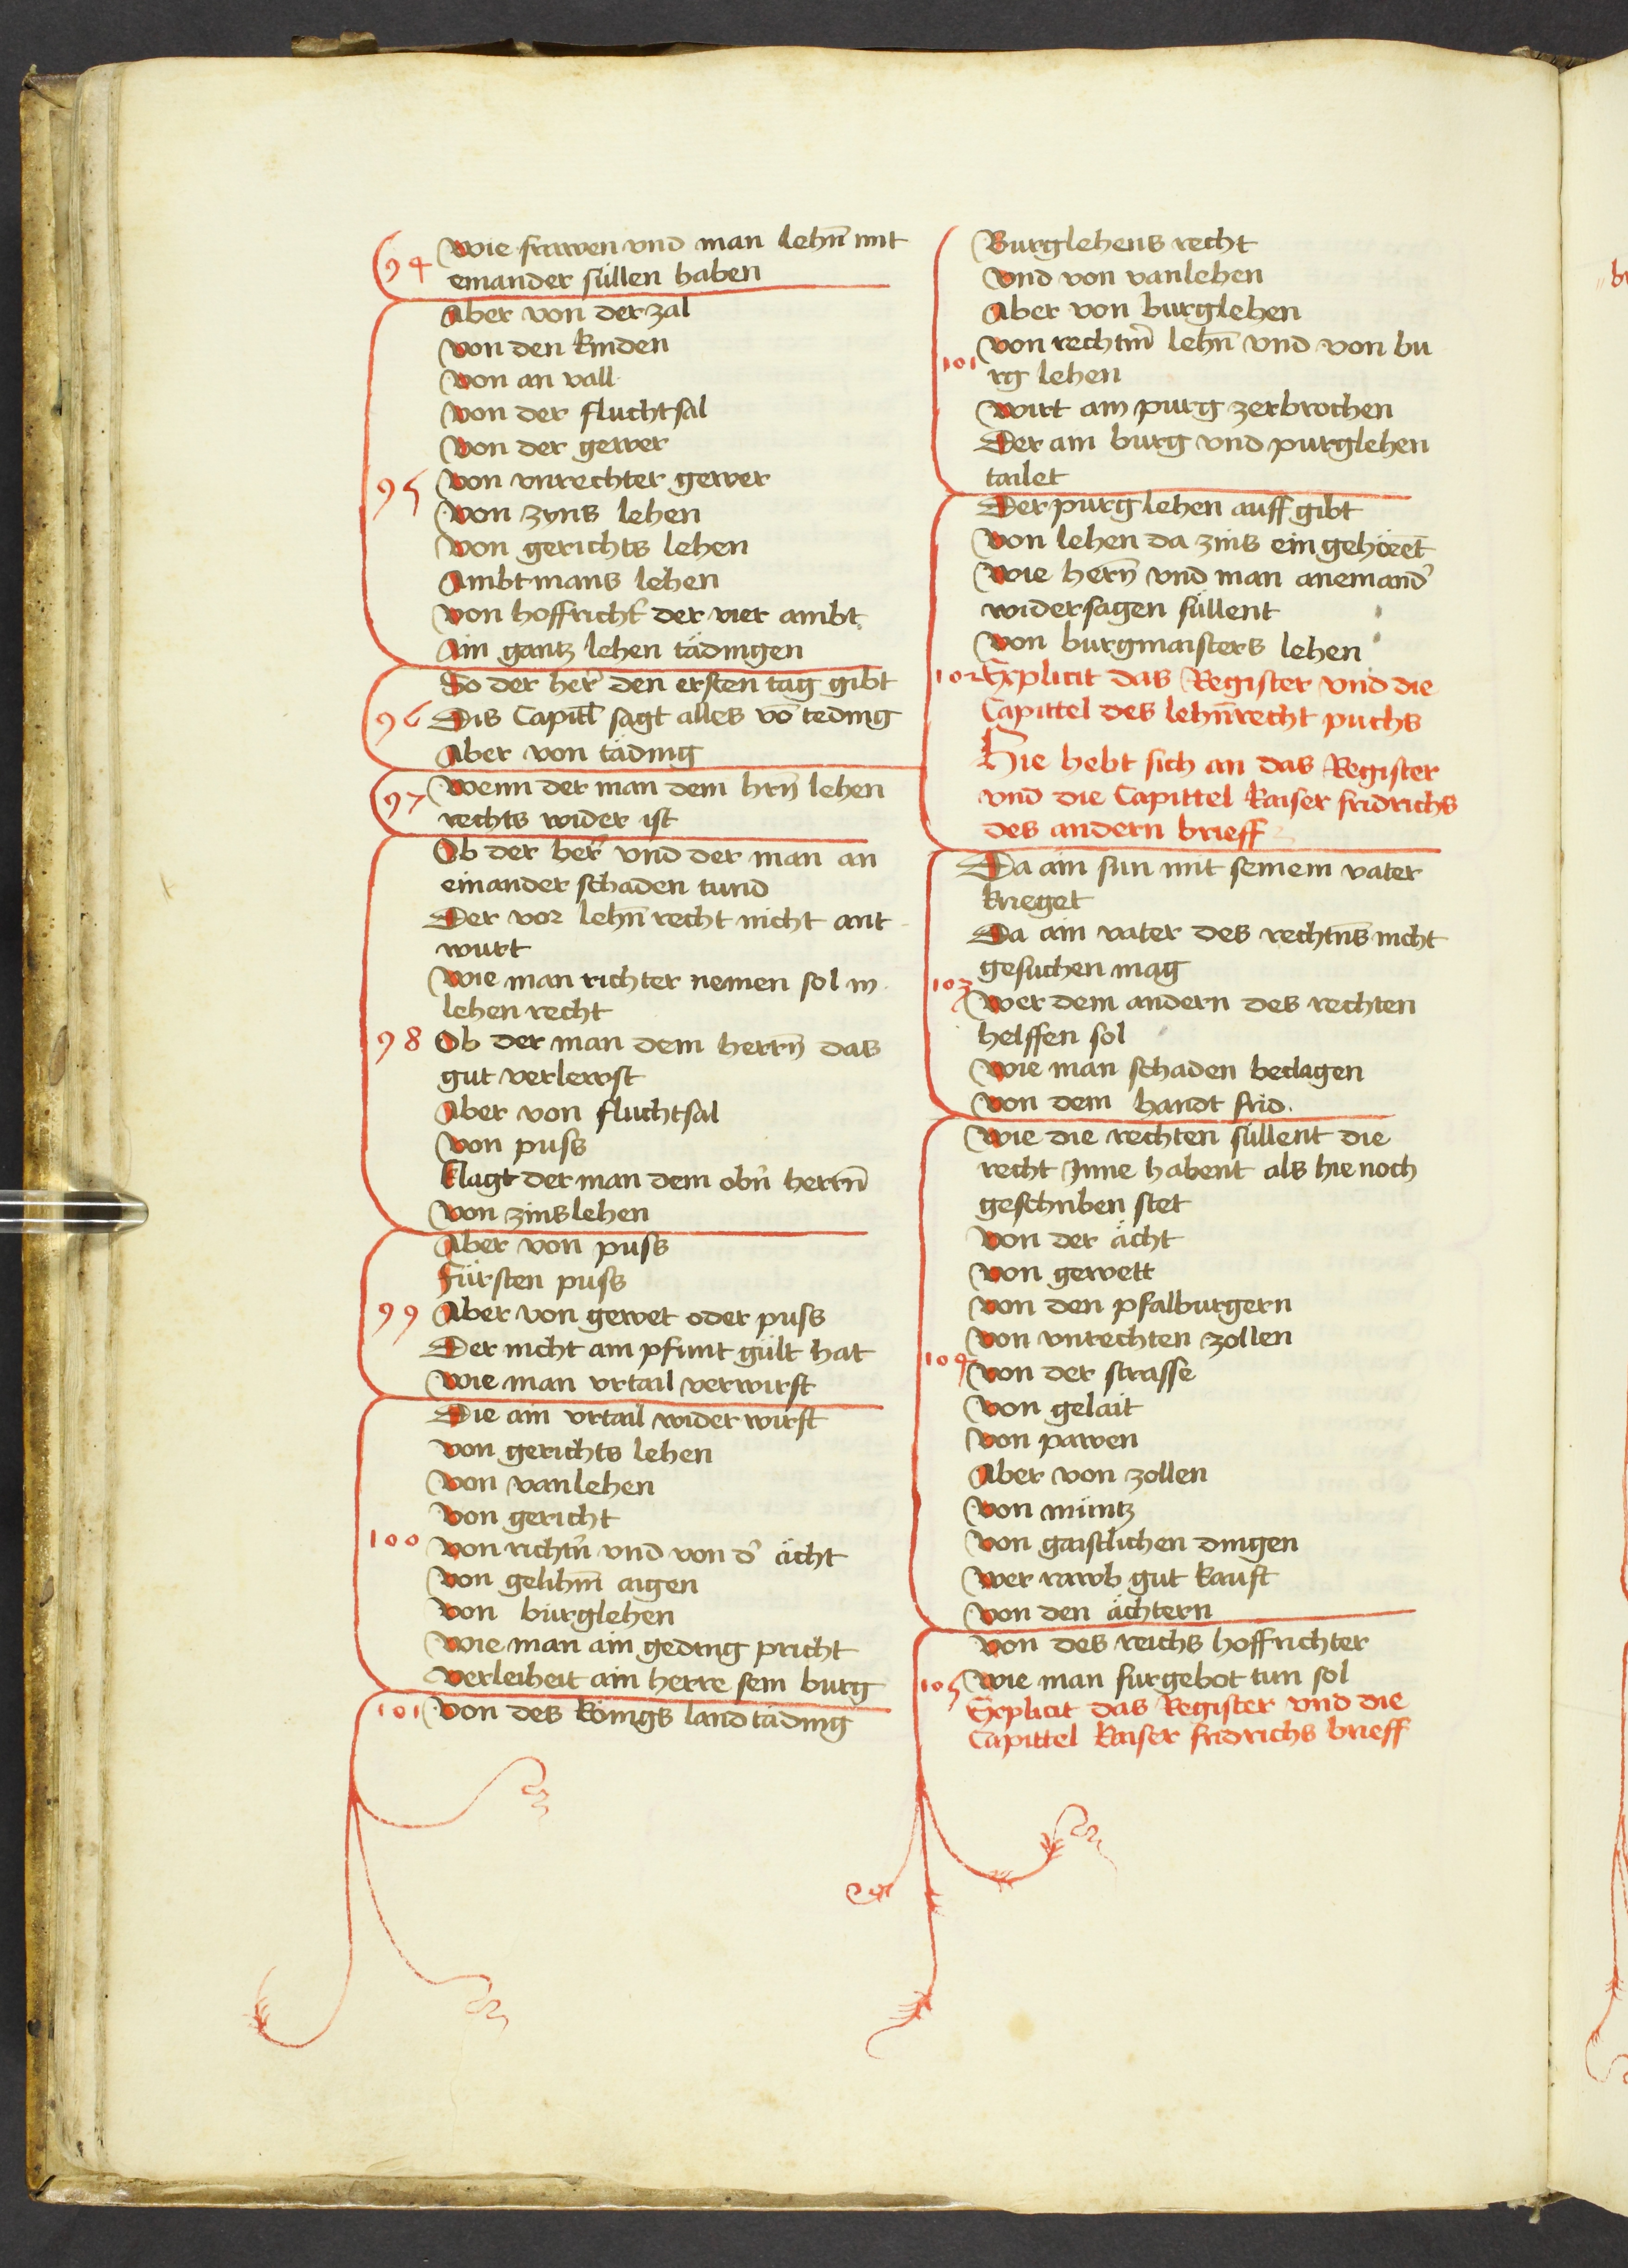 94
Wie frawen vnd man lehn̄ mit
einander süllen haben
Aber von der zal
Von den kinden
Von an vall
Von der fluchtsal
Von der gewer
95
Von vnrechter gewer
Von zyns lehen
Von gerichts lehen
Ambtmans lehen
Von hoffricht̉ der vier ambt
Ain gantz lehen tädingen
So der her̉ den ersten tag gibt
96
Dis Capitl̄ sagt alles vō teding
Aber von täding
97
Wenn der man dem hrn̄ lehen
rechts wider ist
Ob der her̉ vnd der man an
einander schaden tund
Der vor lehn̄ recht nicht ant
wurt
Wie man richter nemen sol in
lehen recht
98
Ob der man dem herrn̄ das
gut verlewst
Aber von fluchtsal
Von puss
Klagt der man dem obn̉ herrn̄
Von zinslehen
Aber von puss
Fürsten puss
99
Aber von gewet oder puss
Der nicht ain pfunt gült hat
Wie man vrtail verwirft
Die ain vrtail wider wirft
Von gerichts lehen
Von vanlehen
Von gericht
100
Von richtn̉ vnd von d̉ ächt
Von gelihm̄ aigen
Von burglehen
Wie man ain geding pricht
Verleiheit ain herre sein burg
101
Von des königs landtäding
Burglehens recht
Vnd von vanlehen
Aber von burglehen
101
Von rechtm̉ lehn̄ vnd von bu
rg lehen
Wirt ain purg zerbrochen
Der ain burg vnd purglehen
tailet
Der purg lehen auff gibt
Von lehen da zins ein gehöret
Wie hern̄ vnd man aneinand̉
widersagen süllent
Von burgmaisters lehen
102
Explicit das Register vnd die
Capittel des lehn̄recht puchs
Hie hebt sich an das Register
vnd die Capittel kaiser fridrichs
des andern brieff
Da ain sun mit seinem vater
krieget
Da ain vater des rechtn̄s nicht
gesuchen mag
103
Wer dem andern des rechten
helffen sol
Wie man schaden beclagen
Von dem handt frid.
Wie die rechten süllent die
recht Inne habent als hie noch
geschriben stet
Von der ächt
Von gewett
Von den pfalburgern
Von vnrechten zollen
104
Von der strasse
Von gelait
Von pawen
Aber von zollen
Von müntz
Von gaistlichen dingen
Wer rawb gut kauft
Von den ächtern
Von des reichs hoffrichter
105
Wie man furgebot tun sol
Explicit das Register vnd die
Capittel kaiser fridrichs brieff